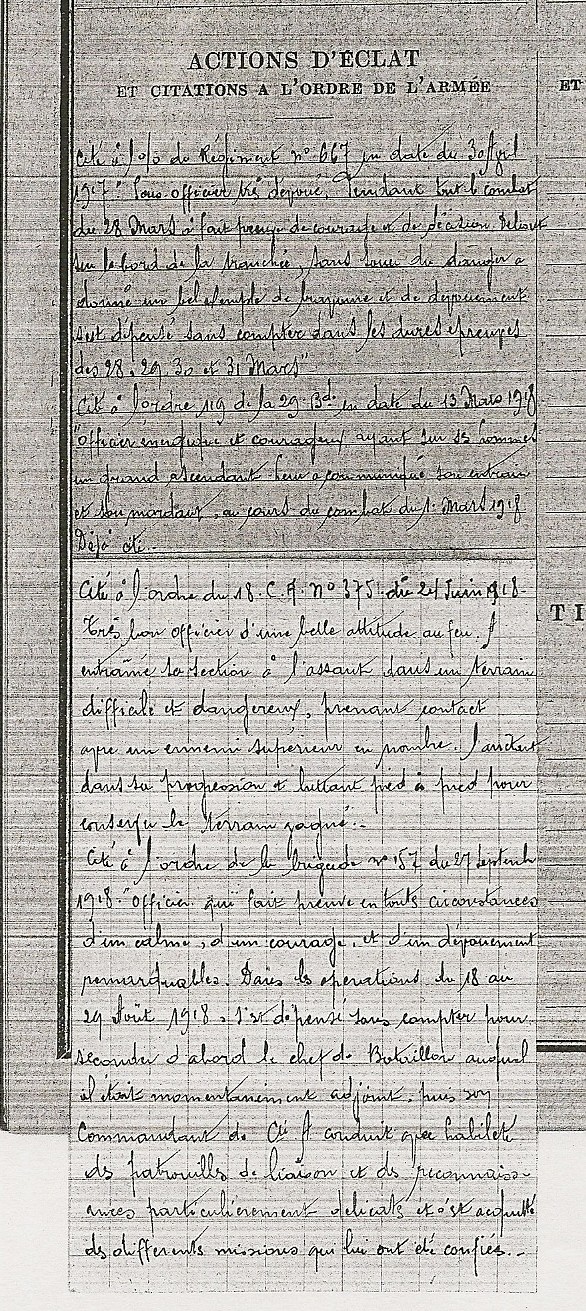 ACTIONS D'ÉCLAT
ET CITATIONS A L'ORDRE DE L'ARMÉE
ET
Cité à l'o/o du Régiment n° 667 en date du 30 Avril
1917 " Sous officier très dévoué, Pendant tout le combat
du 28 Mars a fait preuve de courage et de décision. Debout
sur le bord de la tranchée, sans souci du danger a
donné un bel exemple de bravoure et de dévouement
s'est dépensé sans compter dans les dures épreuves
des 28, 29 30 et 31 Mars"
Cité à l'ordre 119 de la 29 Bde en date du 13 Mars 1918
"Officier énergique et courageux ayant sur ses hommes
un grand ascendant leur a communiqué son entrain
et son mordant, au cours du combat du 1. Mars 1918
Déjà cité.
Cité à l'ordre du 18. C. A. n° 375 du 24 Juin 1918.
Très bon officier d'une belle attitude au feu. A
entraîné sa section à l'assaut dans un terrain
difficile et dangereux, prenant contact
avec un ennemi supérieur en nombre. L'arrêtant
dans sa progression et luttant pied à pied pour
conserver le terrain gagné.-
TI
Cité à l'ordre de la brigade n° 157 du 27 Septemb
1918. "Officier qui fait preuve en toutes circonstances
d'un calme, d'un courage, et d'un dévouement
remarquables. Dans les opérations du 18 au
29 Août 1918, s'est dépensé sans compter pour
seconder d'abord le chef de Bataillon auquel
il était momentanément adjoint, puis son
Commandant de Cie A conduit avec habileté
des patrouilles de liaison et des reconnais-
ances particulièrement délicates et s'est acquitté
des différents missions qui lui ont été confiées.-